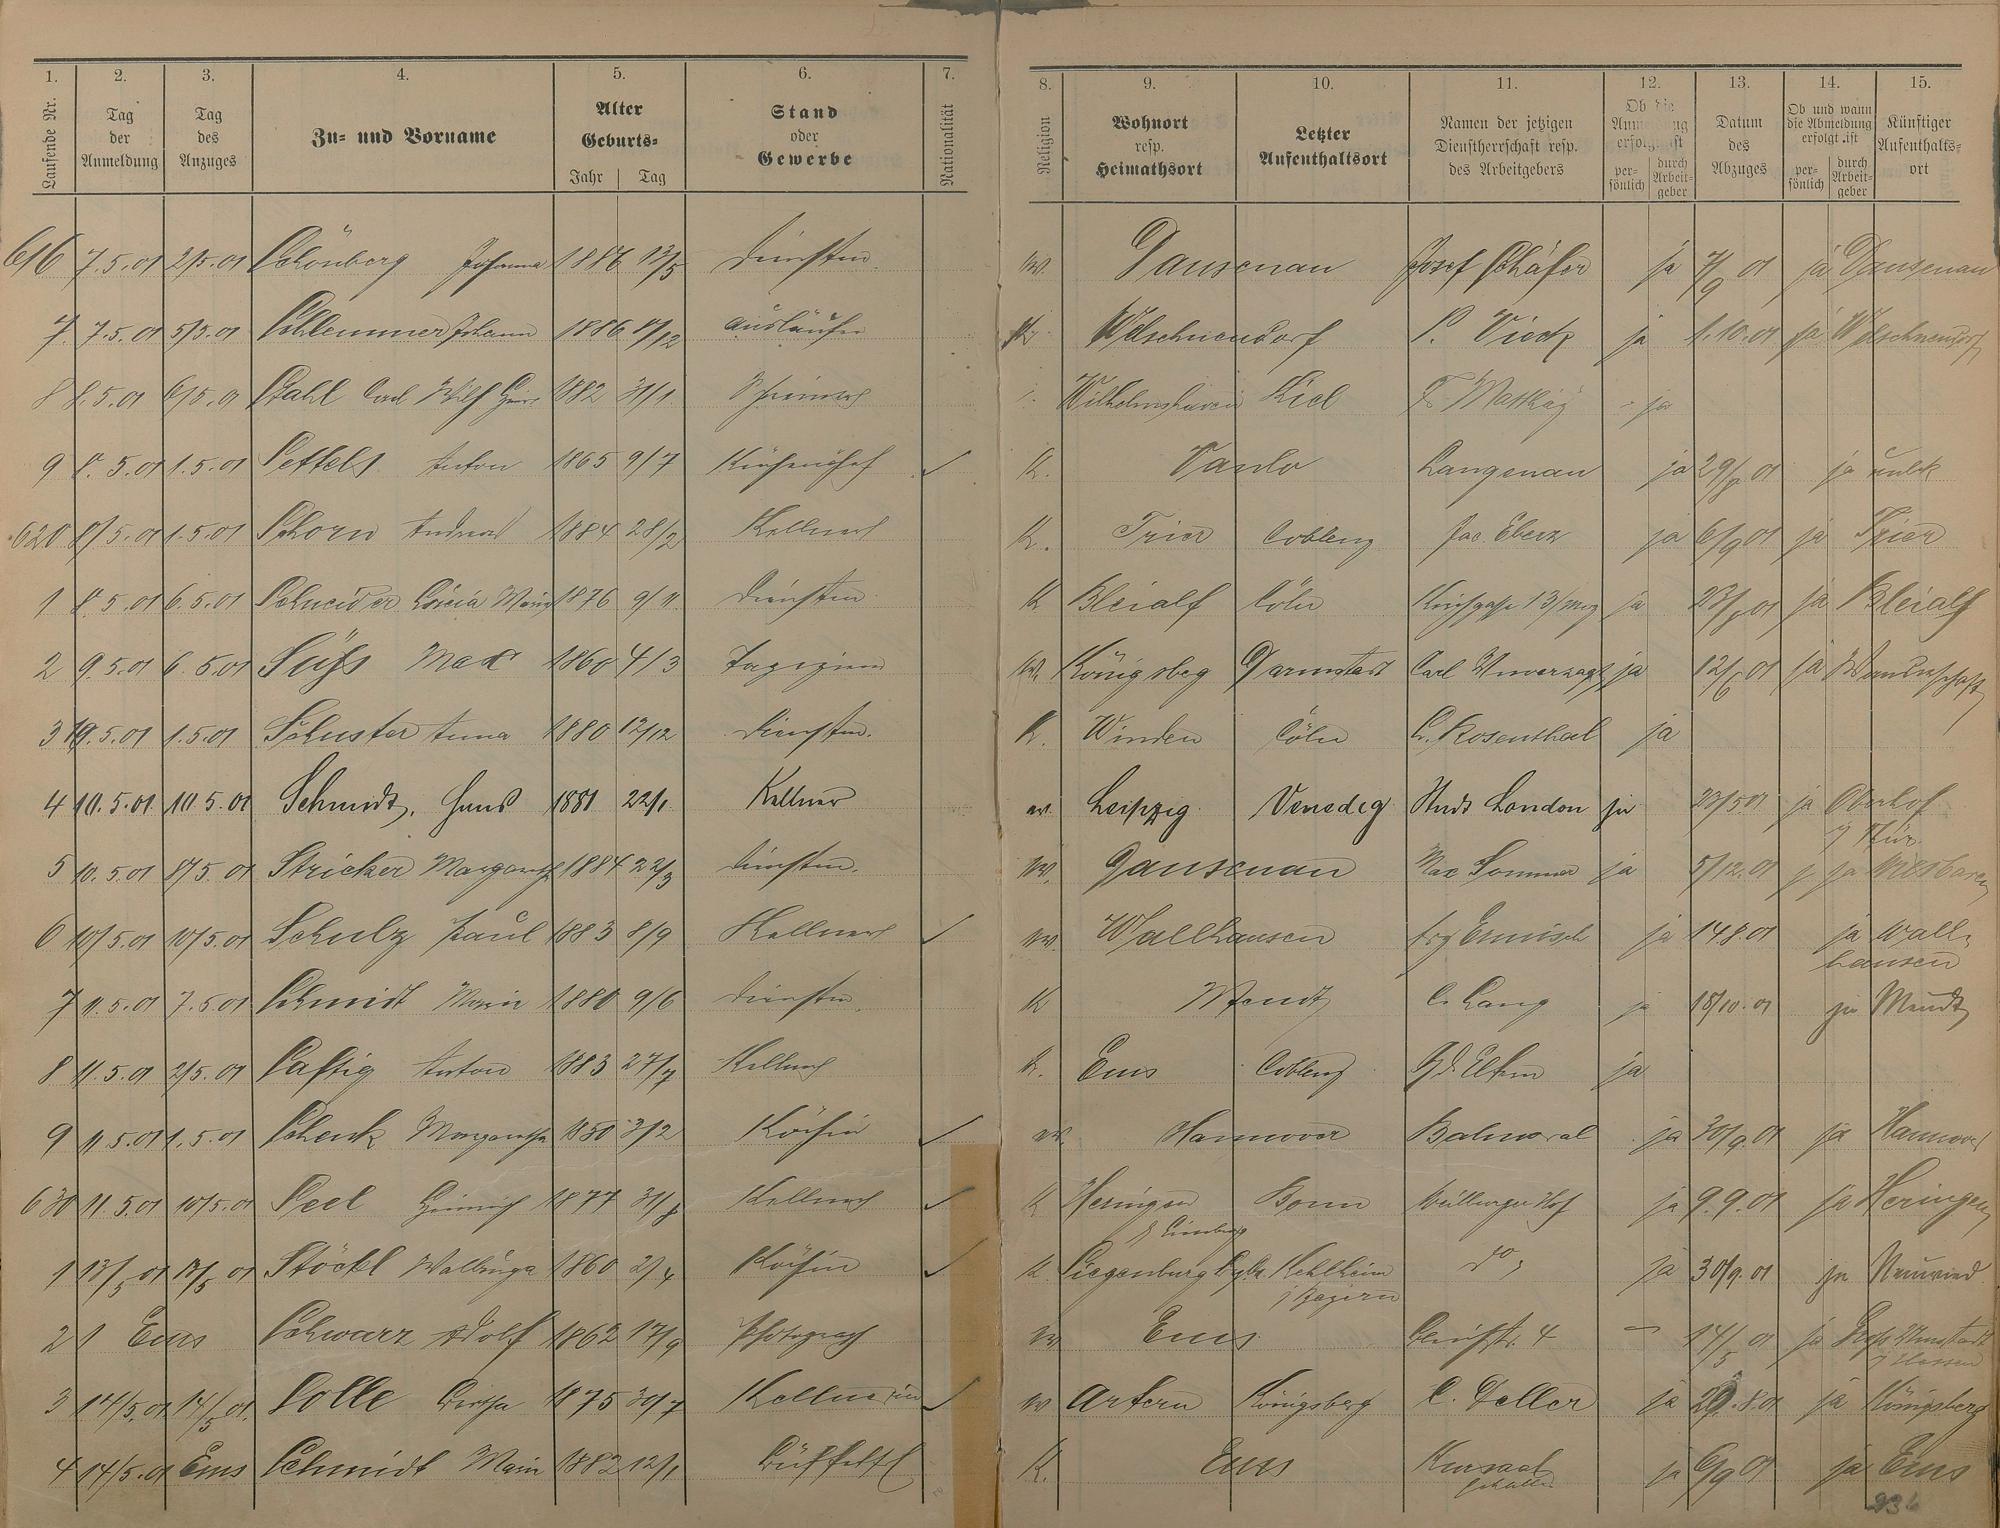 1. 2. 3. 4. 5. 6. 7. 8. 9. 10. 11. 12. 13. 14. 15.
Laufende Nr. Tag der Anmeldung Tag des Anzuges Zu- und Vorname Alter Geburts- Jahr Tag Stand oder Gewerbe Nationalität Religion Wohnort resp. Heimathsort Letzter Aufenthaltsort Namen der jetzigen Dienstherrschaft resp. des Arbeitgebers Ob die Anmeldung erfolgt ist persönlich durch Arbeitgeber Datum des Abzuges Ob und wann die Abmeldung erfolgt ist persönlich durch Arbeitgeber Künftiger Aufenthaltsort
616 7.5.01 2/5.01 Schönberg Johanna 1886 13/5 Dienstm. ev. Dausenau Josef Schäfer ja 7/9 01 ja Dausenau
7. 7.5.01 5/5.01 Schlemmer Johann 1886 8/12 Ausläufer K Welschneudorf P. Viock ja 1.10.01 ja Welschneudorf
8 8.5.01 6/5.01 Stahl Carl 1882 31/1 Wilhelmshaven Kiel ja
9 8.5.01 1.5.01 Settels Anton 1865 9/7 Küchenchef K. Vanlo Langenau ja 29/8 01 ja unbk
620 8/5.01 1.5.01 Schorn Andreas 1884 28/2 Kellner K. Trier Coblenz Jac. Eberz ja 6/9 01 ja Trier
1 8.5.01 6.5.01 Schneider Maria 1876 9/11 Dienstm K Bleialf Cöln ja ja Bleialf
2 9.5.01 6.5.01 Süss Max 1860 4/3 Tapezierer ev. Königsberg Darmstadt Carl Unverzagt ja 12/6 01 ja Wanderschaft
3 10.5.01 1.5.01 Schuster Anna 1880 12/12 Dienstm. K. Winden Cöln L. Rosenthal ja
4 10.5.01 10.5.01 Schmidt, Hans 1881 22/1 Kellner ev. Leipzig Venedig Stadt London ja 23/5 01 ja Oberhof
i/ Thür.
5 10.5.01 8/5.01 Stricker Margarethe 1884 22/3 Dienstm. ev. Dausenau Max Sommer ja 5/12.01 ja Wiesbaden
6 10/5.01 10/5.01 Schulz Paul 1883 8/9 Kellner ev. Wallhausen Ermisch ja 14.8.01 ja Wall-
hausen
7 11.5.01 7.5.01 Schmidt Maria 1880 9/6 Dienstm. K Meudt C. Lang ja 15/10.01 ja Meudt
8 11.5.01 2/5.01 Saftig Anton 1883 27/7 Kellner K. Ems Coblenz ja
9 11.5.01 1.5.01 Schenk Margaretha 1850 3/2 Köchin ev. Hannover Balmoral ja 30/9.01 ja Hannover
630 11.5.01 10/5.01 Seel Heinrich 1877 31/8 Kellner K Heringen Bonn Weilburger Hof ja 9.9.01 ja Heringen
b/ Limburg
1 13/5 01 13/5 01 Stöckl Walburga 1860 2/4 Köchin K Siegenburg Kehlheim do ja 30/9.01 ja Neuwied
i/ Bayern
2 1 Ems Schwarz Adolf 1862 17/9 Photograph ev Ems 4 — 14/5 01 ja Groß Umstadt
i/ Hessen
3 14/5.01 14/5 01. Solle Bertha 1875 30/7 Kellnerin ev Artern Königsberg C. Deller ja 29.8.01 ja Königsberg
4 14/5.01 Ems Schmidt Maria 1882 12/1 Büffetfl K. Ems Kursaal ja 6/9 01 ja Ems